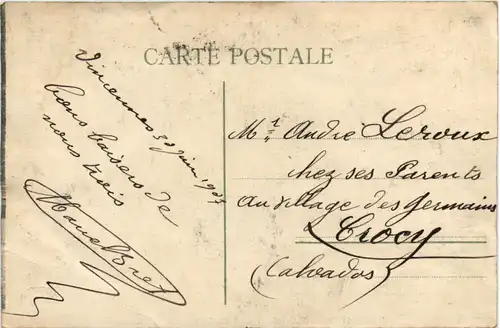 CARTE POSTALE
Vincennes 30 juin 1907
bons baisers de
nous trois
Mr André Leroux
chez ses Parents
au village des Germains
Crocy
(Calvados)